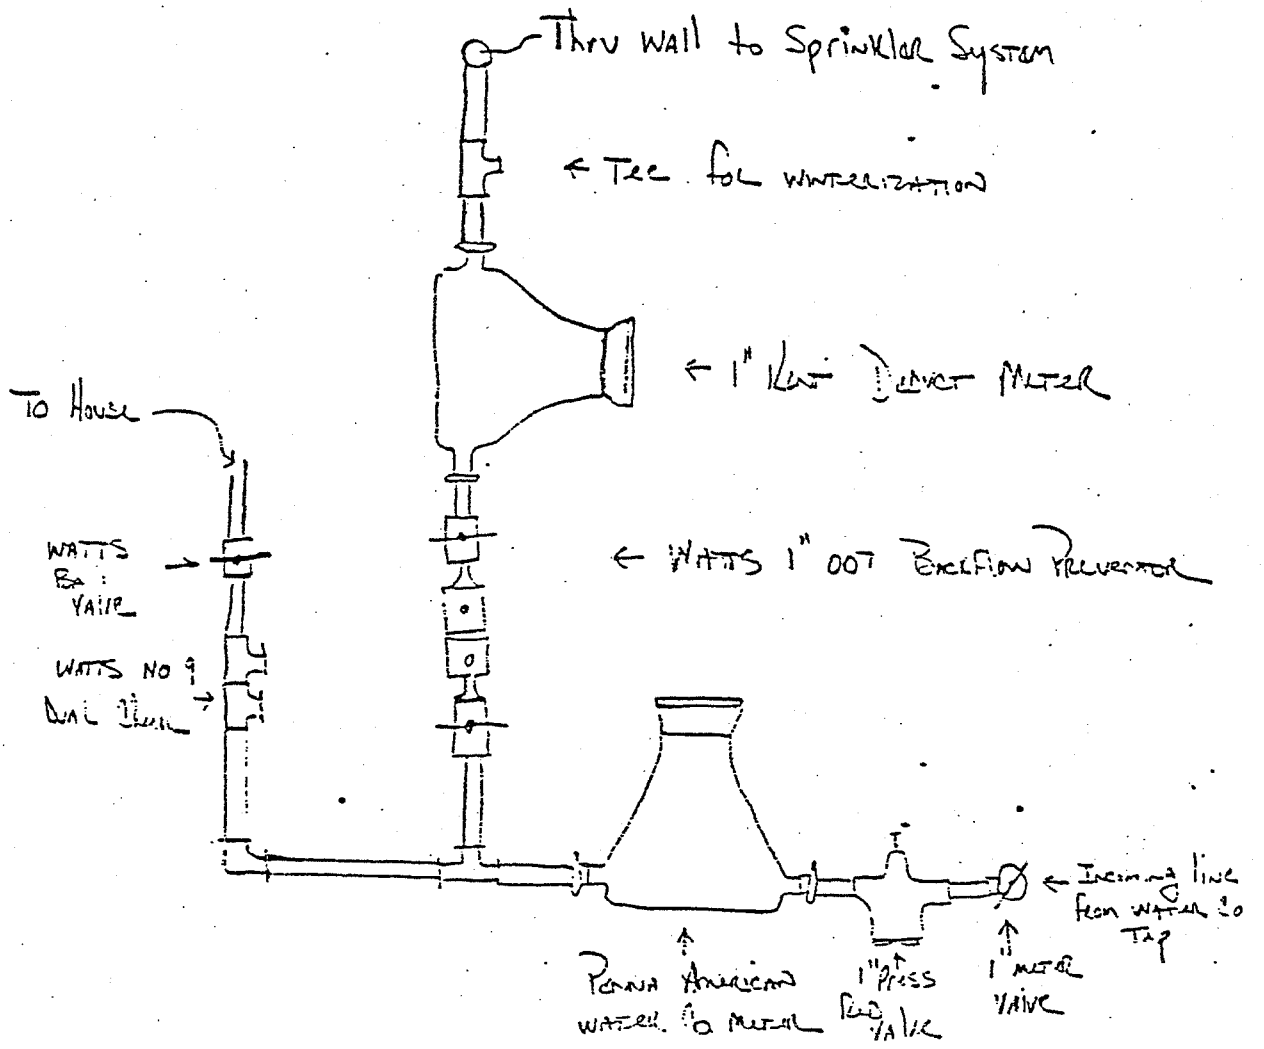 Thru Wall to Sprinkler System
Tee for Winterization
1" Kent Deduct Meter
To House
Watts
Ba
Valve
Watts 1" 007 Backflow Preventer
Watts No 9
Dual Check
Incoming line
from Water Co
Tap
Penna American
Water Co Meter
1" Press
Red
Valve
1" Meter
Valve